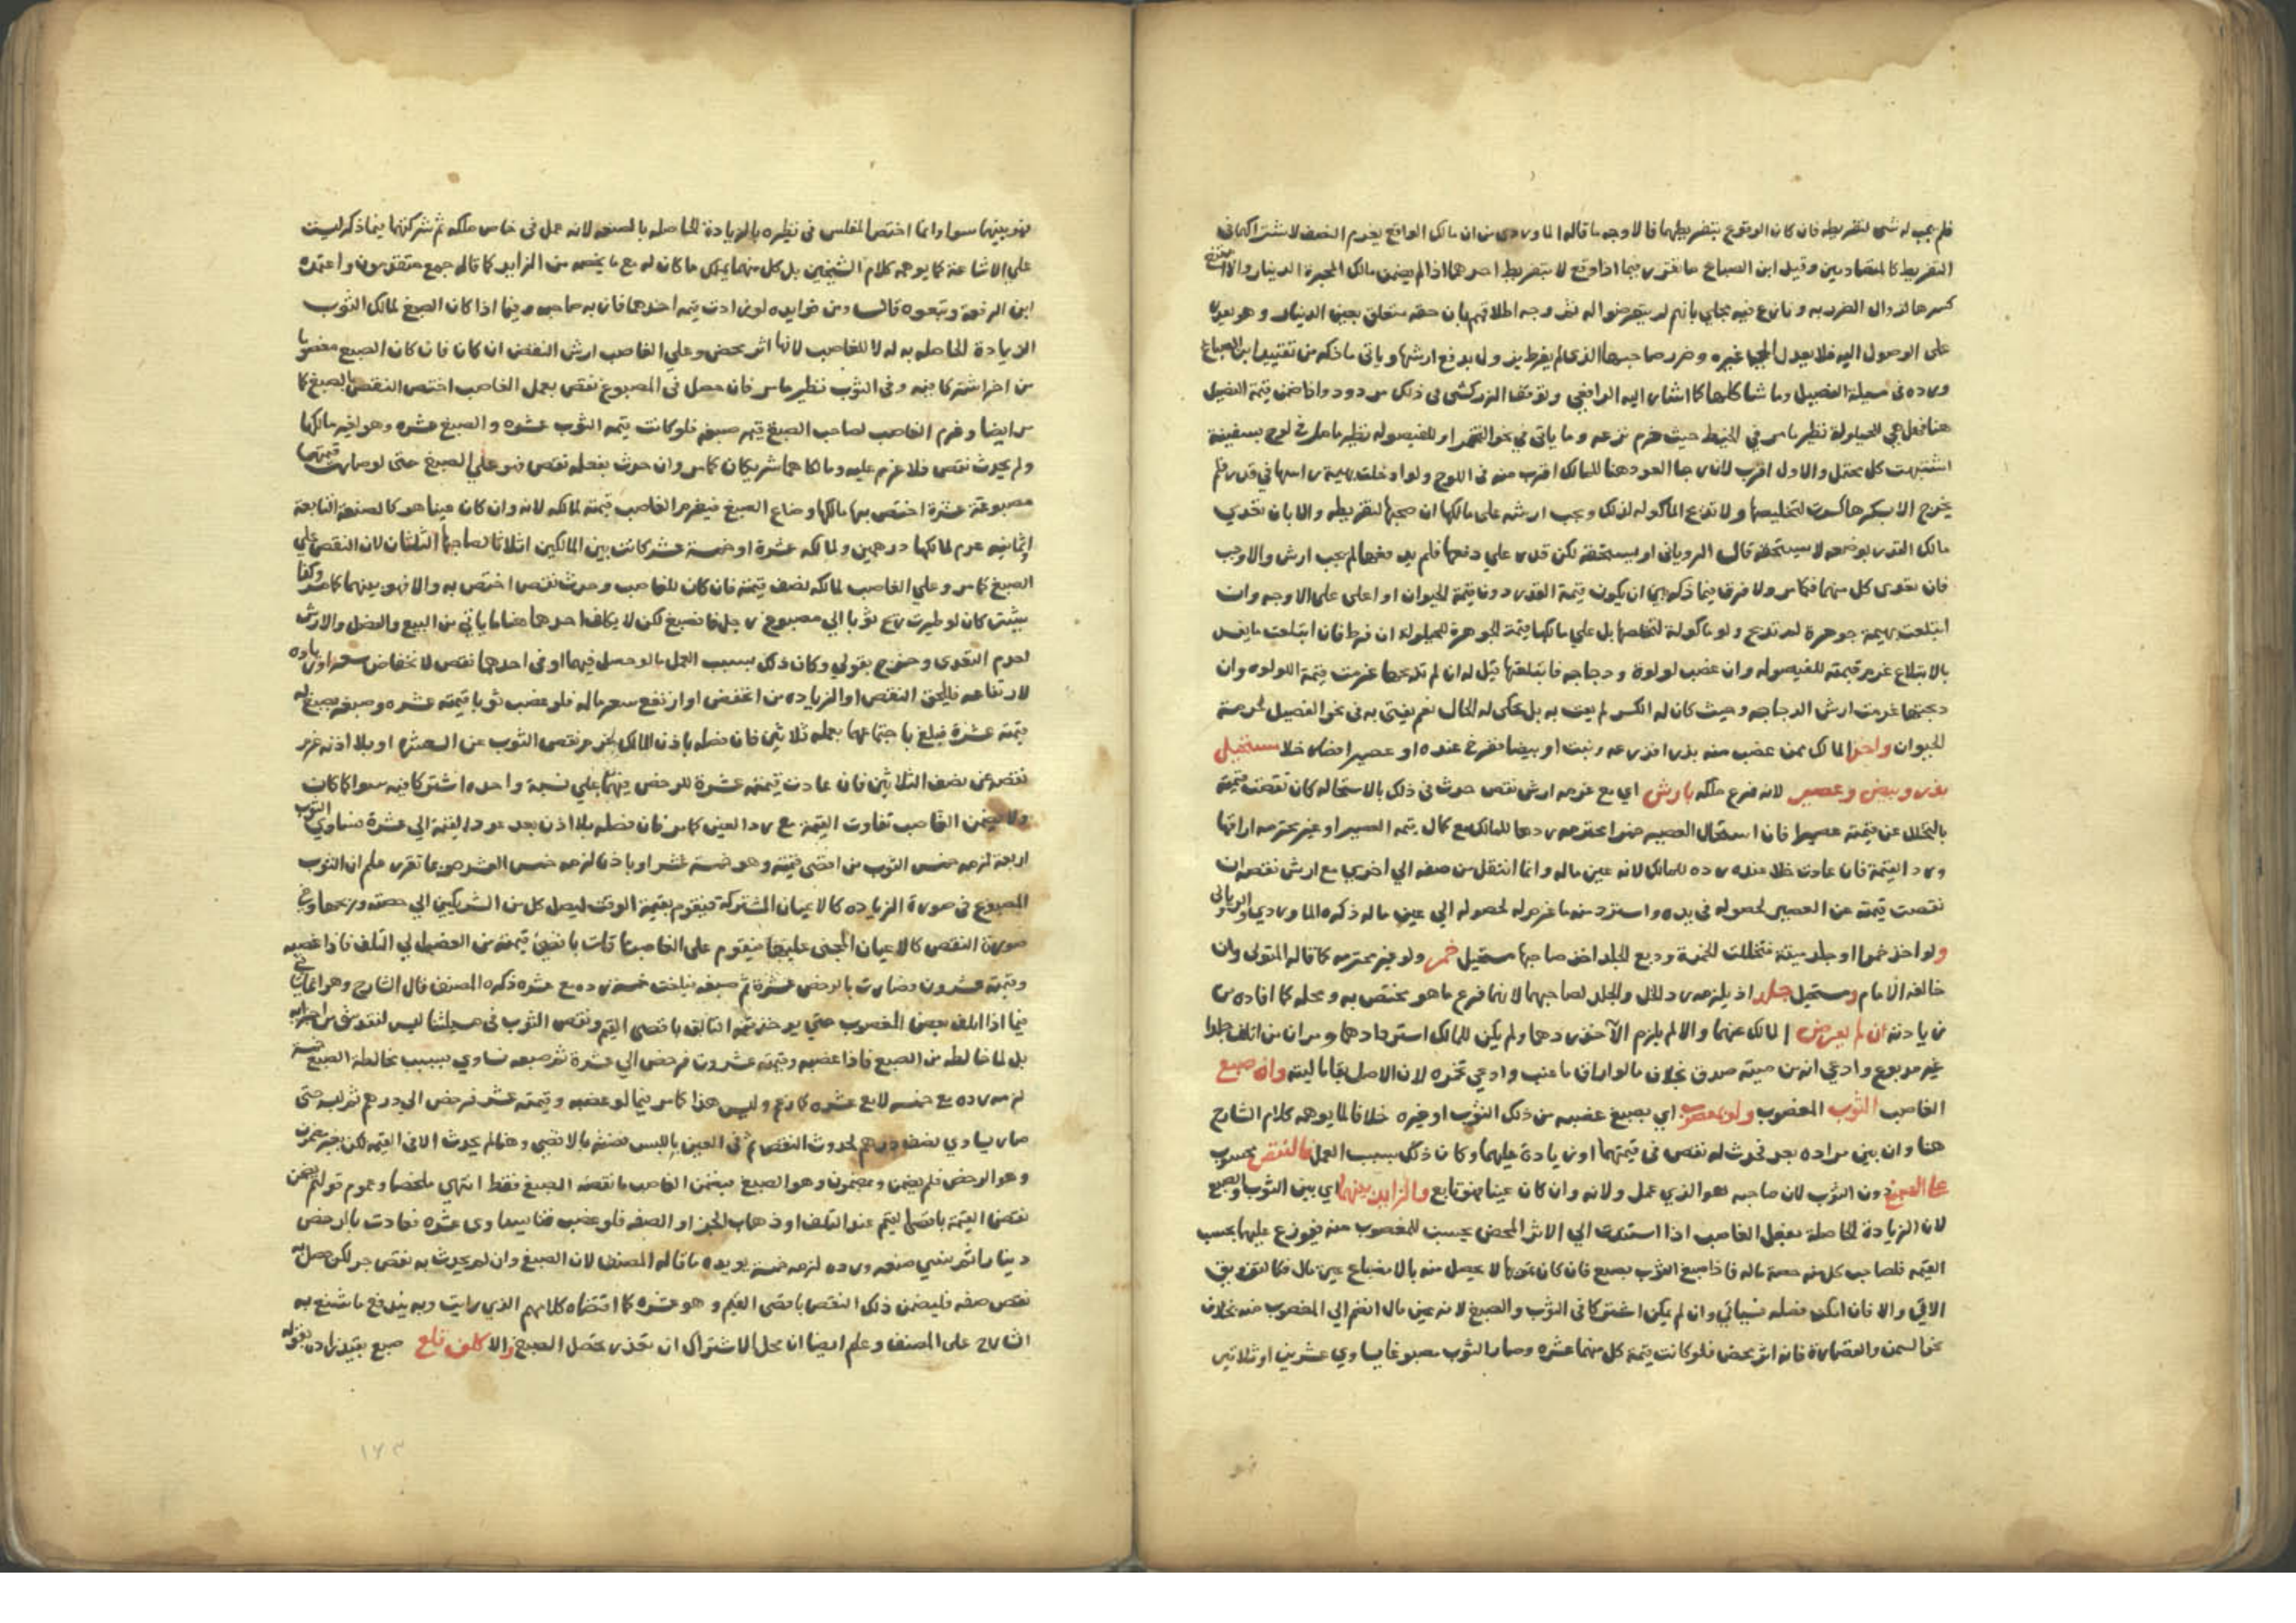 فلم يجب له شي لتفريطه فان كان الوقوع بتفريطهما فالاوجه ما قاله الماوردي من ان مالك الواقع يغرم النصف لاشتراكهما في
التفريط كالمتصادمين وقيل ابن الصباغ ما تقرر فيما اذا وقع لا بتفريط احدهما اذا لم يضمن مالك المحبرة الدينار والا امتنع
كسرها لزوال الضرر به ونازع فيه مجلي بانهم لم يتعرضوا له نعم وجه اطلاقهم بان حقه متعلق بعين الدينار وهو يعده
على الوصول اليه فلا يعدل الي غيره وضرر صاحبها الذي لم يفرط يزول بدفع ارشها وياتي ما ذكره من تقييد ابن الصباغ
ورده في مسيلة الفصيل وما شاكلها كما اشار اليه الرافعي وتوقف الزركشي في ذلك مردود واذا ضمن قيمة الفصيل
هنا فهل هي للحيلولة نظير ما مر في الخيط حيث غرم نزعه وما ياتي في نحو الخمر او للفيصوله نظير ما مر في لوح بسفينة
اشتبهت كل محتمل والاول اقرب لان رجا العود هنا للمالك اقرب منه في اللوح ولو ادخلت بهيمة راسها في قدر فلم
يخرج الا بكسرها كسرت لتخليصها ولا تذبح الماكوله لذلك ويجب ارشه على مالكها ان صحبها لتفريطه والا بان تعدي
مالك القدر بوضعه لا يستحقه قال الروياني او يستحقه لكن قدر علي دفعها فلم يدفعها لم يجب ارش والاوجب
فان تعدى كل منهما فكما مر ولا فرق فيما ذكر بين ان يكون قيمة القدر دون قيمة الحيوان او اعلى على الاوجه وان
ابتلعت بهيمة جوهرة لم تذبح ولو ماكولة لتخلصها بل علي مالكها قيمة الجوهرة للحيلولة ان فرط فان ابتلعت ما يفسد
بالابتلاع غرم قيمته للفيصوله وان غصب لولوة ودجاجه فابتلعتها قيل له ان لم تذبحها غرمت قيمة اللولوه وان
ذبحتها غرمت ارش الدجاجه وحيث كان له الكسر لم يفت به بل يحكى له الحال نعم يفتى به في نحو الفصيل لحرمة
الحيوان واخذ المالك ممن غصب منه بذرا فزرعه ونبت او بيضا تفرخ عنده او عصيرا فصار خلا مستحيل
بذر وبيض وعصير لانه فرع ملكه بارش اي مع غرمه ارش نقص حدث في ذلك بالاستحاله كان نقصت قيمته
بالتخلل عن قيمته عصيرا فان استحال العصير خمرا محترمه ردها للمالك مع كمال قيمة العصير او غير محترمه اراقها
ورد القيمة فان عادت خلا عنده رده للمالك لانه عين ماله وانما انتقل من صفه الي اخري مع ارش نقصه ان
نقصت قيمته عن العصير لحصوله في يده واسترد منه ما غرمه له لحصوله الي عين ماله ذكره الماوردي والروياني
ولو اخذ خمرا او جلد ميتة فتخللت الخمرة ودبغ الجلد اخذ صاحبها مستحيل خمر ولو غير محترمه كما قاله المتولي وان
خالفه الامام ومستحيل جلد اذ يلزمه رد الخل والجلد لصاحبهما لانهما فرع ما هو مختص به ومحله كما افاده من
زيادته ان لم يعرض المالك عنهما والا لم يلزم الآخذ ردهما ولم يكن للمالك استردادهما ومر ان من اتلف جلدا
غير مدبوغ وادعي انه من ميته صدق بخلاف ما لو اراق ما عنب وادعي تخمره لان الاصل بقا ماليته وان صبغ
الغاصب الثوب المغصوب ولو بمغصوب اي بصبغ غصبه من ذلك الثوب او غيره خلافا لما يوهمه كلام الشارح
هنا وان بين مراده بعد فحدث له نقص في قيمتهما او زيادة عليهما وكان ذلك بسبب العمل فالنقص محسوب
على الصبغ دون الثوب لان صاحبه هو الذي عمل ولانه وان كان عينا فهو تابع والزايد بينهما اي بين الثوب والصبغ
لان الزيادة الحاصلة بفعل الغاصب اذا استندت الي الاثر المحض يحسب للمغصوب منه فيوزع عليهما بحسب
القيمه فلصاحب كل منه حصة ماله فاذا صبغ الثوب بصبغ فان كان تمويها لا يحصل منه بالانصباغ عين مال فكالتزويق
الاتي والا فان امكن فصله فسياتي وان لم يكن اشتركا في الثوب والصبغ لانه عين مال انضم الي المغصوب منه بخلاف
نحو السمن والقصارة فانه اثر محض فلو كانت قيمة كل منهما عشره وصار الثوب مصبوغا يساوي عشرين او ثلاثين
فهو بينهما سوا وانما اختص المفلس في نظيره بالزيادة الحاصله بالصنعه لانه عمل في خاص ملكه ثم شركتهما فيما ذكر ليست
علي الاشاعة كما يوهمه كلام الشيخين بل كل منهما يملك ما كان له مع ما يخصه من الزايد كما قاله جمع متقدمون واعتمده
ابن الرفعة وتبعوه قالـــ ومن فوايده لو زادت قيمه احدهما فاز به صاحبه وفيما اذا كان الصبغ لمالك الثوب
الزيادة الحاصله به له لا للغاصب لانها اثر محض وعلي الغاصب ارش النقص ان كان فان كان الصبغ مغصوبا
من اخر اشتركا فيه وفي الثوب نظير ما مر فان حصل في المصبوغ نقص بعمل الغاصب اختص النقص بالصبغ كما
مر ايضا وغرم الغاصب لصاحب الصبغ قيمه صبغه فلو كانت قيمه الثوب عشره والصبغ عشره وهو لغير مالكها
ولم يحدث نقص فلا غرم عليه ومالكاهما شريكان كما مر وان حدث بفعله نقص فهو علي الصبغ حتى لو صارت قيمتهما
مصبوغة عشرة اختص بها مالكها وضاع الصبغ فيغرم الغاصب قيمته لمالكه لانه وان كان عينا هو كالصنعة التابعة
او ثمانيه غرم لمالكها درهمين ولمالكه عشرة او خمسة عشر كانت بين المالكين اثلاثا لصاحبها الثلثان لان النقص علي
الصبغ كما مر وعلي الغاصب لمالكه نصف قيمته فان كان للغاصب وحدث نقص اختص به والا فهو بينهما كما مر وكذا
يشتركان لو طيرت ريح ثوبا الي مصبوغ رجل فانصبغ لكن لا يكلف احدهما هنا ما ياتي من البيع والفصل والارش
لعدم التعدي وخرج بقولي وكان ذلك بسبب العمل ما لو حصل فيهما او في احدهما نقص لانخفاض سعر او زياده
لارتفاعه فيلحق النقص او الزياده من انخفض او ارتفع سعر ماله فلو غصب ثوبا قيمته عشره وصبغه بصبغ له
قيمته عشرة فبلغ باجتماعهما بعمله ثلاثين فان فصله باذن المالك غرم نقص الثوب عن العشرة او بلا اذنه غرم
نقصه عن نصف الثلاثين فان عادت قيمته عشرة للرخص فيهما علي نسبة واحده اشتركا فيه سوا كما كان
ولا يضمن الغاصب تفاوت القيمة مع رد العين كما مر فان فصله بلا اذن بعد عود القيمة الي عشرة فساوي الثوب
اربعة لزمه خمس الثوب من اقصى قيمه وهو خمسة عشر او باذن لزمه خمس العشره وبما تقرر علم ان الثوب
المصبوغ في صورة الزياده كالاعيان المشتركة فيقوم بقيمة الوقت ليصل كل من الشريكين الي حصته وربحها وفي
صورة النقص كالاعيان المجني عليها فيقوم على الغاصب ما فات باقصى قيمته من الغصب الي التلف فاذا غصبه
وقيمته عشرون فصارت بالرخص عشرة ثم صبغه فبلغت خمسة رده مع عشره ذكره المصنف قال الشارح وهو انما ياتي
فيما اذا اتلف بعض المغصوب حتى يوخذ قيمه التالف باقصى القيم ونقص الثوب في مسيلتنا ليس لتفويت من اجزايه
بل لمخالطه من الصبغ فاذا غصبه وقيمته عشرون فرخص الي عشرة ثم صبغه فساوي بسبب مخالطة الصبغ خمسة
لزمه رده مع خمسه لا مع عشره كما زعم وليس هذا كما مر فيما لو غصبه وقيمته عشر فرخص الي درهم ثم لبسه حتى
صار يساوي نصف درهم لحدوث النقص ثم في العين باللبس فضمنه بالاقصى وهنا لم يحدث الا في القيمه لكن بغير مضمون
وهو الرخص فلم يضمن ومضمون وهو الصبغ فيضمن الغاصب ما نقصه الصبغ فقط انتهى ملخصا وعموم قولهم يضمن
نقص القيمة باقصاها ليتم عند التلف او ذهاب الجز او الصفه فلو غصب قنا يساوي عشره فعادت بالرخص
دينارا ثم نسي صنعه ورده لزمه خمسة يويده ما قاله المصنف لان الصبغ وان لم يحدث به نقص جز لكن حصل به
نقص صفه فليضمن ذلك النقص باقصى القيم وهو عشره كما اقتضاه كلامهم الذي رايت وبه يندفع ما شنع به
الشارح على المصنف وعلم ايضا ان محل الاشتراك ان تعذر فصل الصبغ والا كلف قلع صبغ بقيد زاده بقوله
١٦٣